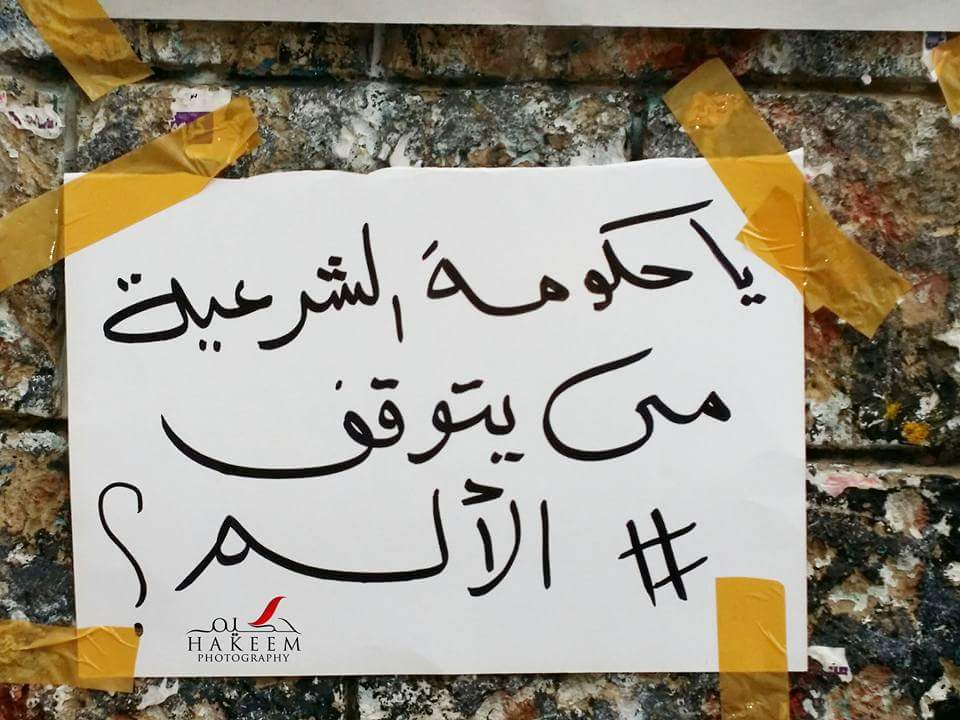 يا حكومة الشرعية
متى يتوقف
# الألم ؟
حكيم
HAKEEM
PHOTOGRAPHY